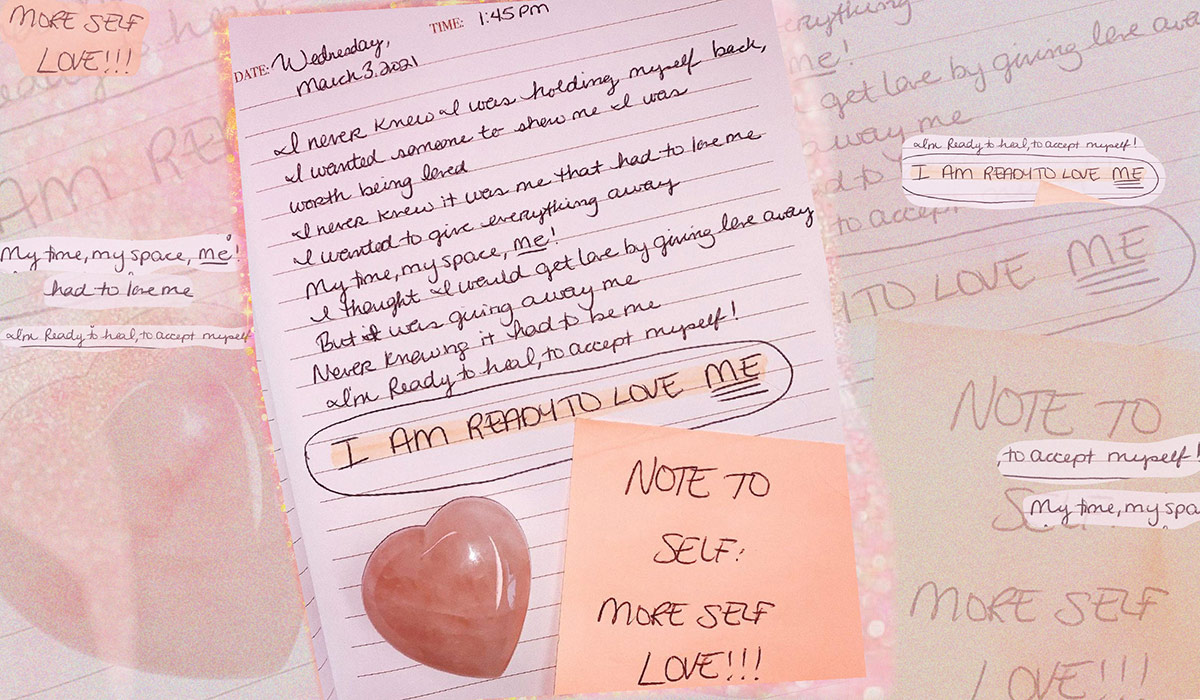 MORE SELF
LOVE!!!
TIME: 1:45 PM
DATE: Wednesday,
March 3, 2021
I never knew I was holding myself back,
I wanted someone to show me I was
worth being loved
I never knew it was me that had to love me
I wanted to give everything away
My time, my space, me!
I thought I would get love by giving love away
But it was giving away me
Never knowing it had to be me
I'm Ready to heal, to accept myself!
I AM READY TO LOVE ME
NOTE TO
SELF:
MORE SELF
LOVE!!!
My time, my space, me!
had to love me
I'm Ready to heal, to accept myself
AM REA
everything
me!
get love by giving love away
away me
I'm Ready to heal, to accept myself!
I AM READY TO LOVE ME
to accept
TO LOVE ME
NOTE TO
, to accept myself!
Se
My time, my spa
MORE SELF
LOVE!!!